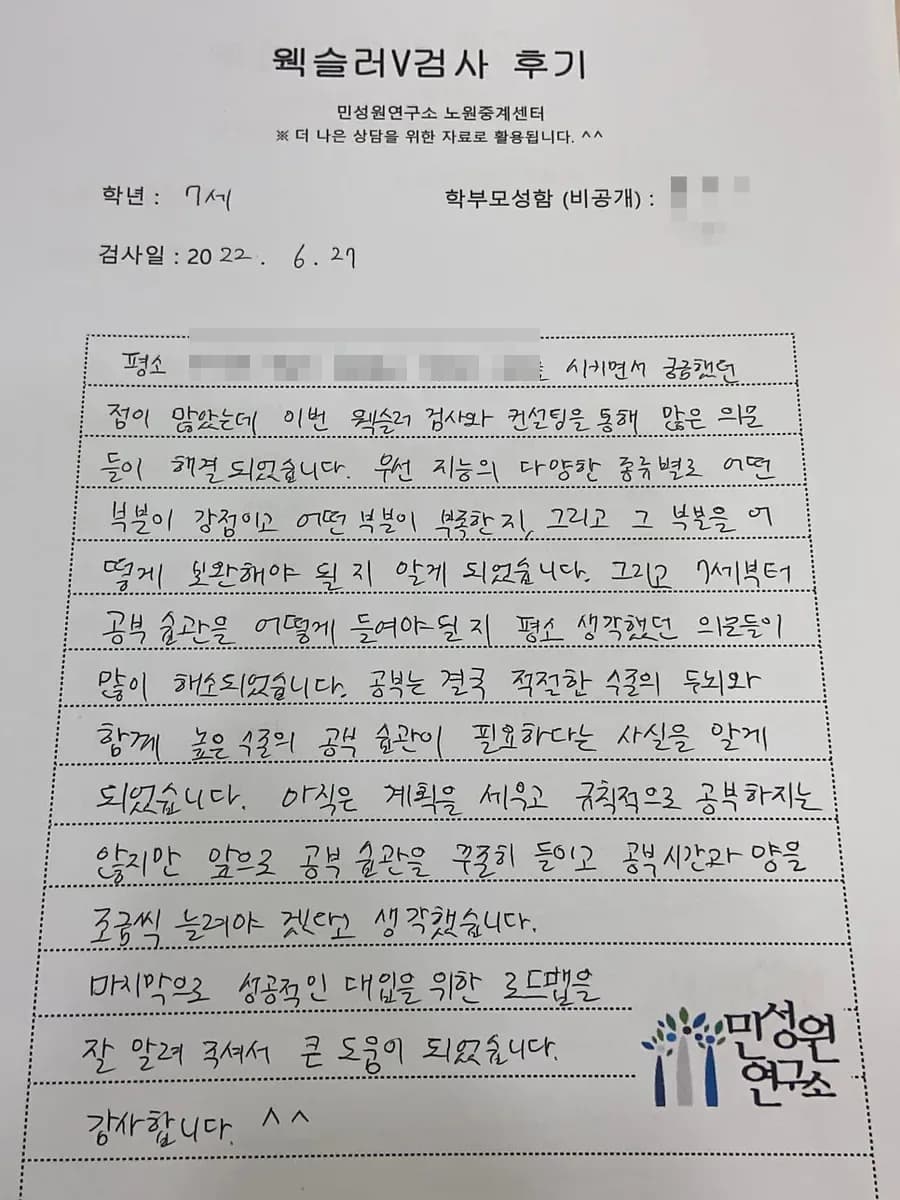 웩슬러V검사 후기
민성원연구소 노원중계센터
※ 더 나은 상담을 위한 자료로 활용됩니다. ^^
학년 : 7세
학부모성함 (비공개) :
검사일 : 2022. 6. 27
평소 시키면서 궁금했던
점이 많았는데 이번 웩슬러 검사와 컨설팅을 통해 많은 의문
들이 해결 되었습니다. 우선 지능의 다양한 종류별로 어떤
부분이 강점이고 어떤 부분이 부족한 지, 그리고 그 부분을 어
떻게 보완해야 될 지 알게 되었습니다. 그리고 7세부터
공부 습관을 어떻게 들여야 될 지 평소 생각했던 의문들이
많이 해소되었습니다. 공부는 결국 적절한 수준의 두뇌와
함께 높은 수준의 공부 습관이 필요하다는 사실을 알게
되었습니다. 아직은 계획을 세우고 규칙적으로 공부하지는
않지만 앞으로 공부 습관을 꾸준히 들이고 공부시간과 양을
조금씩 늘려야 겠다고 생각했습니다.
마지막으로 성공적인 대입을 위한 로드맵을
잘 알려 주셔서 큰 도움이 되었습니다.
감사합니다. ^^
민성원
연구소